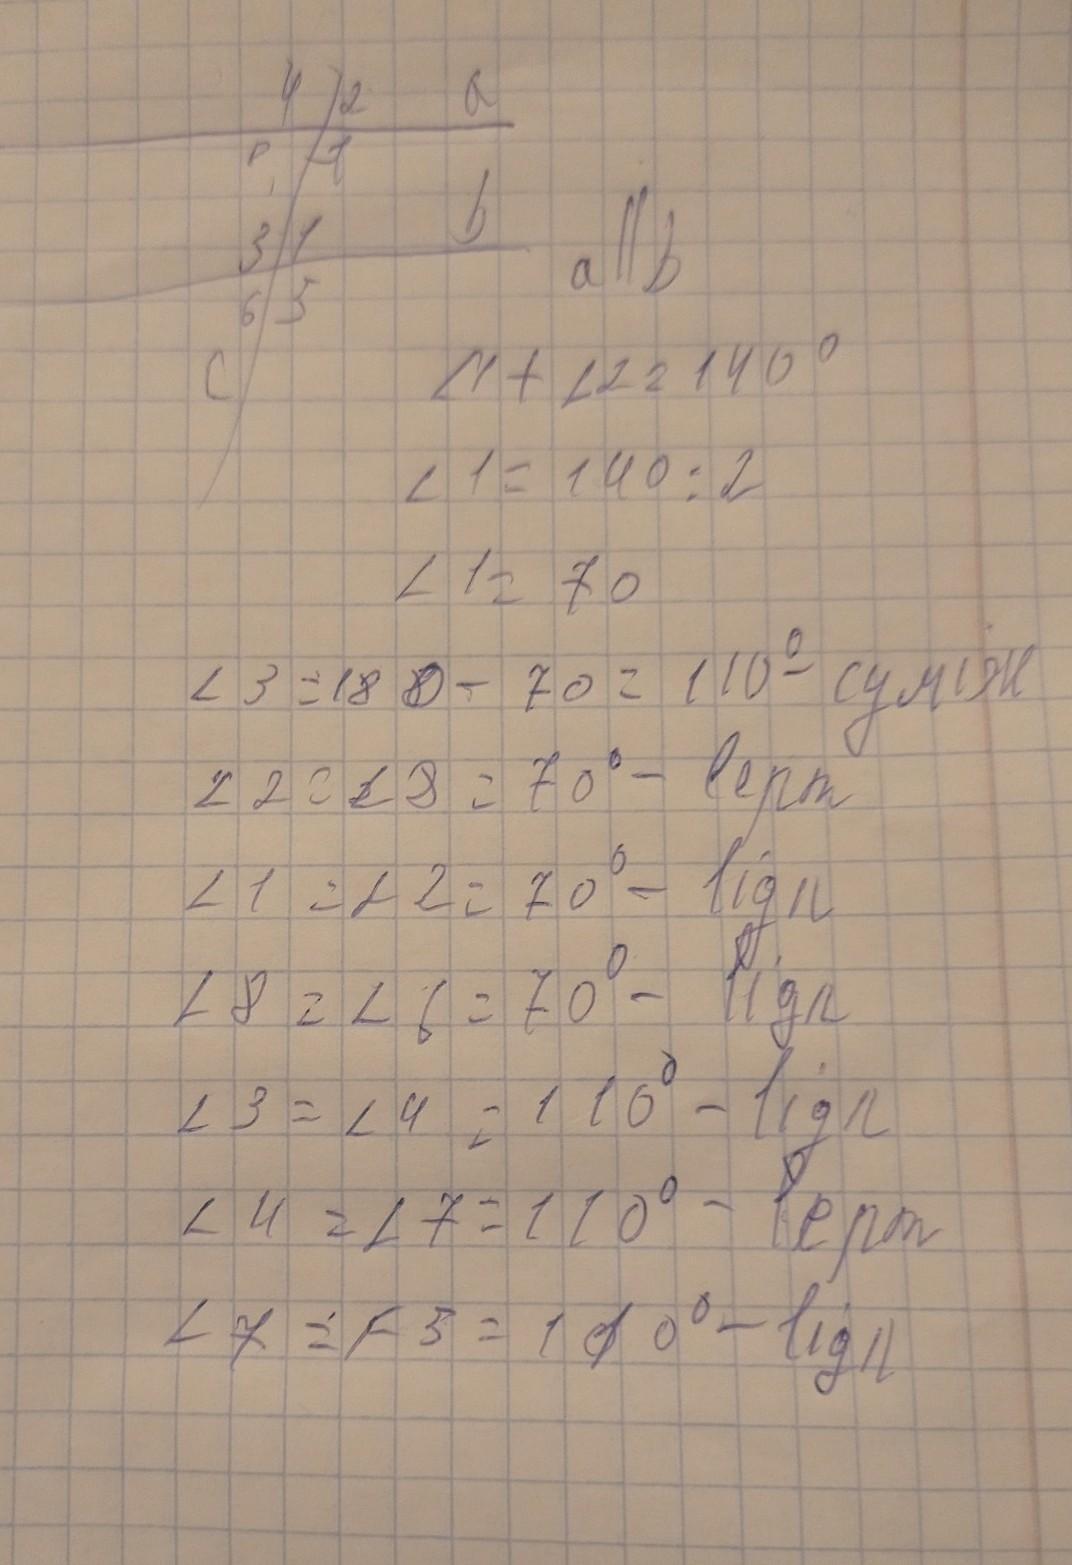 4 2 a
8 7
3 1 b
6 5
a || b
c
∠1 + ∠2 = 140°
∠1 = 140 : 2
∠1 = 70
∠3 = 180 - 70 = 110° - суміж
∠2 = ∠8 = 70° - верт
∠1 = ∠2 = 70° - відп
∠8 = ∠6 = 70° - відп
∠3 = ∠4 = 110° - відп
∠4 = ∠7 = 110° - верт
∠7 = ∠5 = 110° - відп